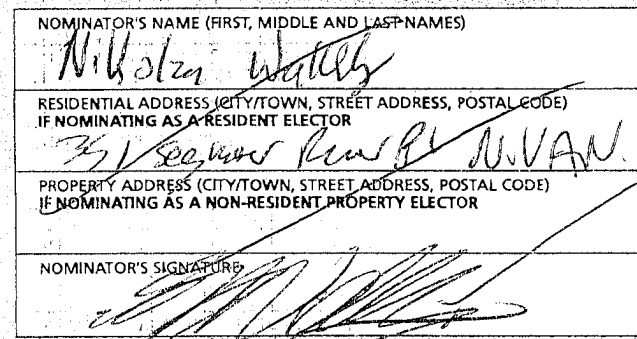 NOMINATOR'S NAME (FIRST, MIDDLE AND LAST NAMES)
RESIDENTIAL ADDRESS (CITY/TOWN, STREET ADDRESS, POSTAL CODE)
IF NOMINATING AS A RESIDENT ELECTOR
N.VAN.
PROPERTY ADDRESS (CITY/TOWN, STREET ADDRESS, POSTAL CODE)
IF NOMINATING AS A NON-RESIDENT PROPERTY ELECTOR
NOMINATOR'S SIGNATURE